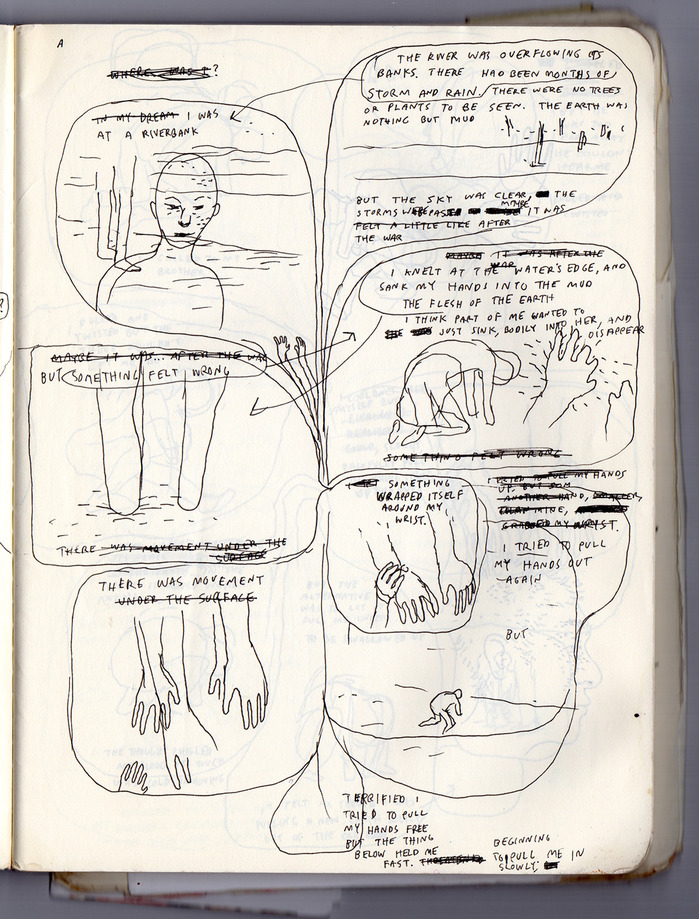 A
WHERE WAS I?
IN MY DREAM I WAS
AT A RIVERBANK
THE RIVER WAS OVERFLOWING ITS
BANKS. THERE HAD BEEN MONTHS OF
STORM AND RAIN. THERE WERE NO TREES
OR PLANTS TO BE SEEN. THE EARTH WAS
NOTHING BUT MUD
BUT THE SKY WAS CLEAR, THE
STORMS WERE PAST MAYBE IT WAS
FELT A LITTLE LIKE AFTER
THE WAR
MAYBE IT WAS AFTER THE
WAR
I KNELT AT THE WATER'S EDGE, AND
SANK MY HANDS INTO THE MUD
THE FLESH OF THE EARTH
I THINK PART OF ME WANTED TO
JUST SINK, BODILY INTO HER, AND
DISAPPEAR
SOMETHING FELT WRONG
MAYBE IT WAS... AFTER THE WAR
BUT SOMETHING FELT WRONG
THERE WAS MOVEMENT UNDER THE
SURFACE
THERE WAS MOVEMENT
UNDER THE SURFACE
SOMETHING
WRAPPED ITSELF
AROUND MY
WRIST.
I TRIED TO PULL MY HANDS
UP. BUT
ANOTHER HAND, SMALLER,
THAN MINE,
GRABBED MY WRIST.
I TRIED TO PULL
MY HANDS OUT
AGAIN
BUT
TERRIFIED I
TRIED TO PULL
MY HANDS FREE
BUT THE THING
BELOW HELD ME
FAST.
BEGINNING
TO PULL ME IN
SLOWLY.